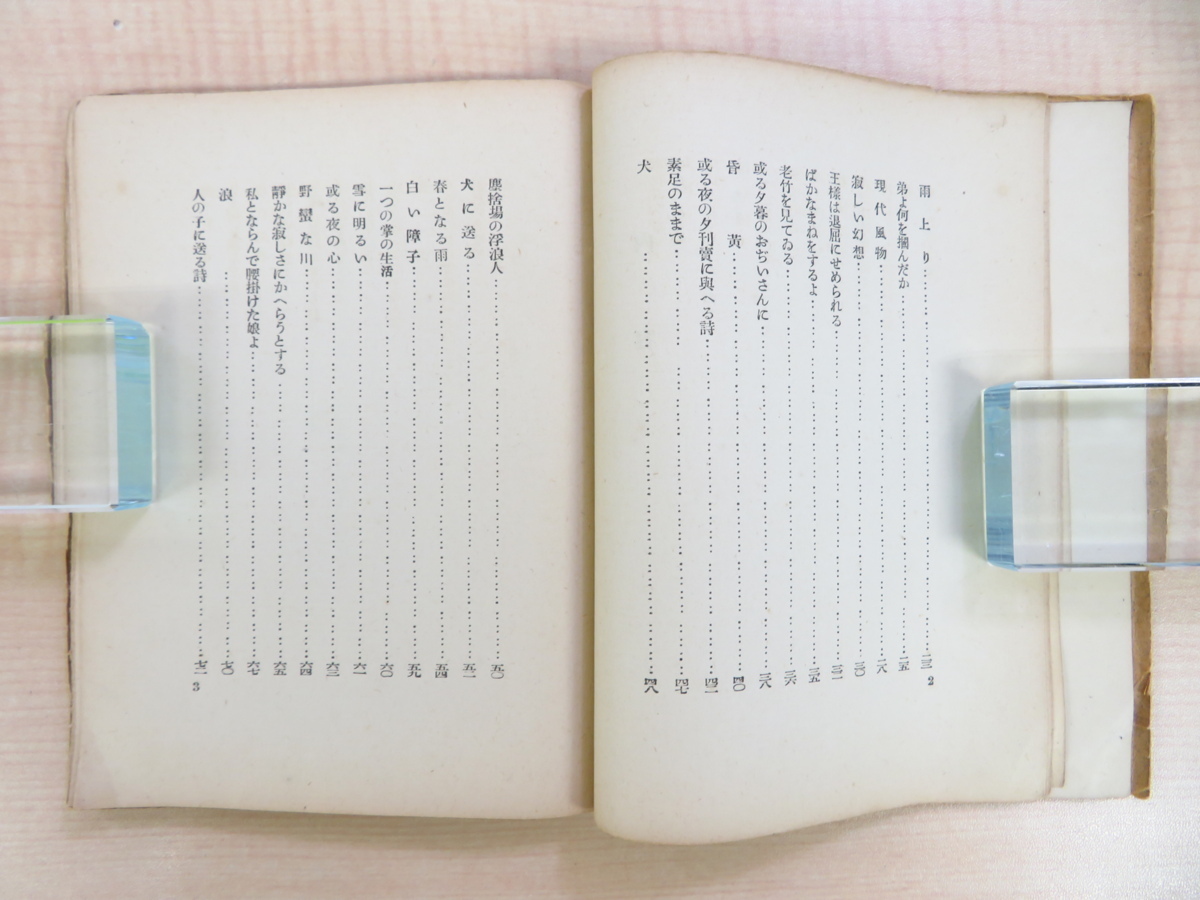 雨上り……二三
弟よ何を掴んだか……二五
現代風物……二八
寂しい幻想……三〇
王樣は退屈にせめられる……三二
ばかなまねをするよ……三五
老竹を見てゐる……三六
或る夕暮のおぢいさんに……三八
昏黄……四〇
或る夜の夕刊賣に與へる詩……四二
素足のままで……四七
犬……四八
2
塵捨場の浮浪人……五〇
犬に送る……五二
春となる雨……五四
白い障子……五九
一つの掌の生活……六〇
雪に明るい……六一
或る夜の心……六三
野蠻な川……六四
靜かな寂しさにかへらうとする……六五
私とならんで腰掛けた娘よ……六七
浪……七〇
人の子に送る詩……七二
3